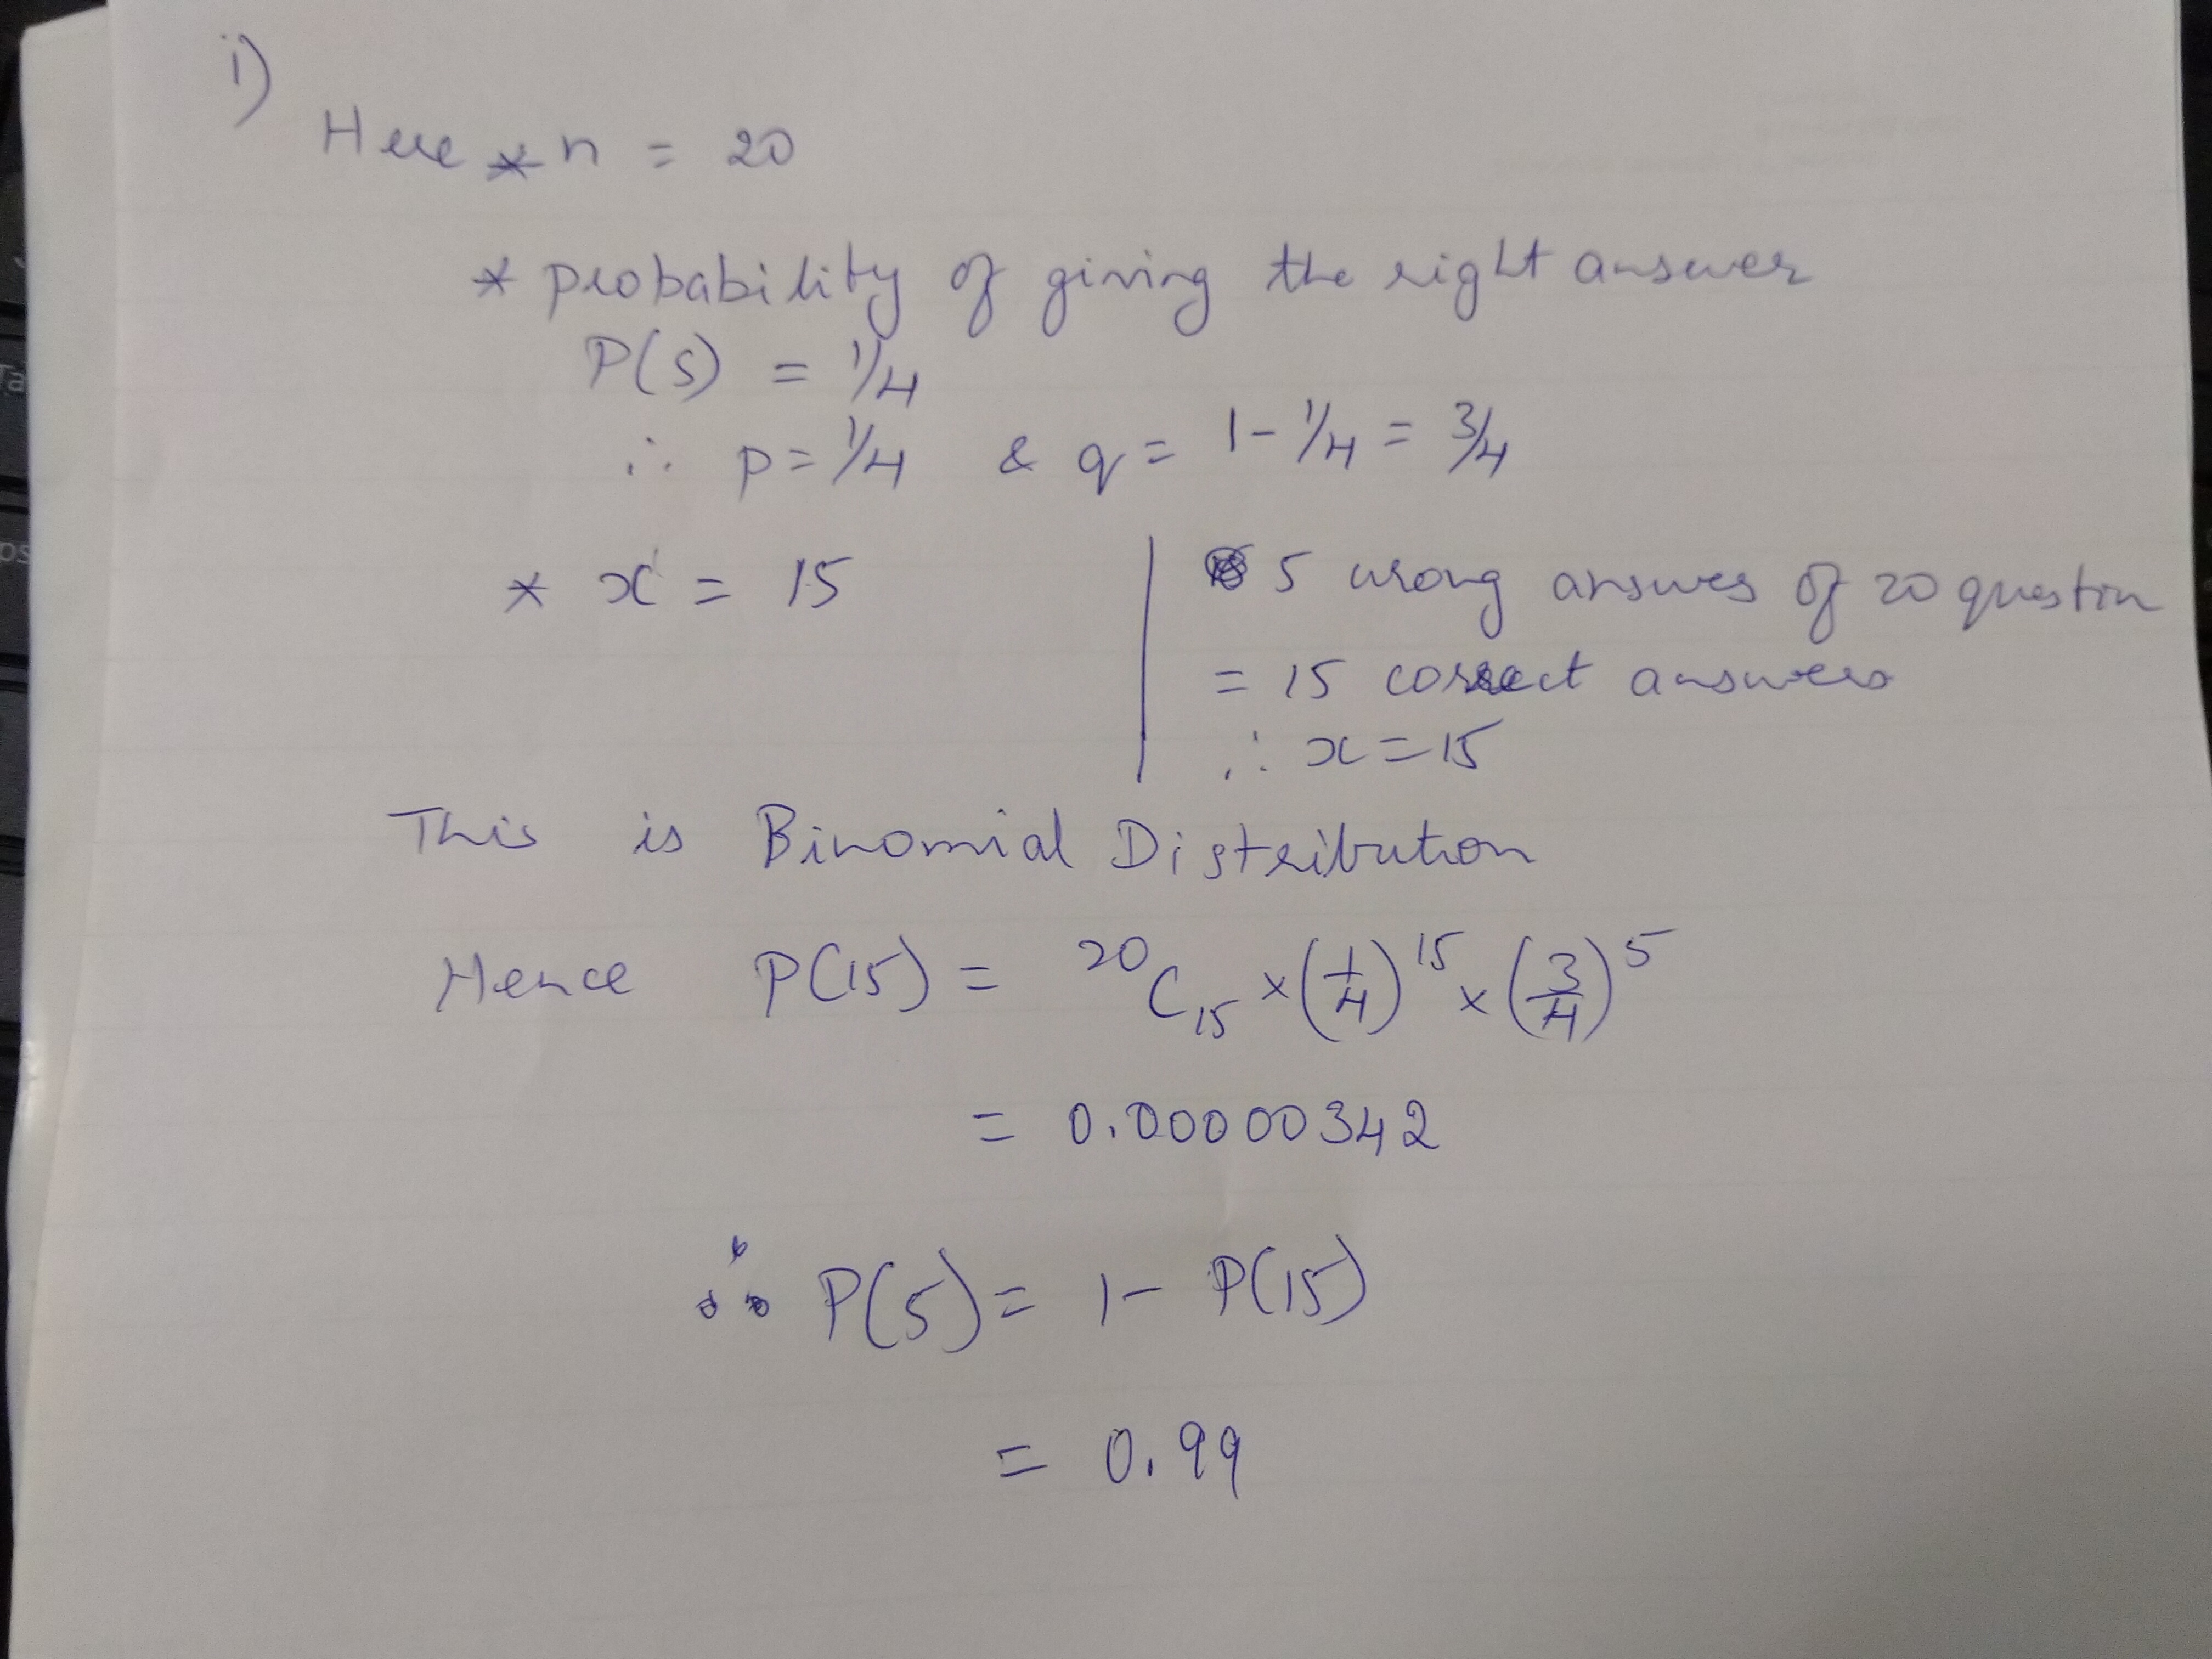 i)
Here * n = 20
* probability of giving the right answer
P(S) = 1/4
∴ p = 1/4 & q = 1 - 1/4 = 3/4
* x = 15
5 wrong answer of 20 question
= 15 correct answers
∴ x = 15
This is Binomial Distribution
Hence P(15) = ²⁰C₁₅ × (1/4)¹⁵ × (3/4)⁵
= 0.00000342
∴ P(5) = 1 - P(15)
= 0.99